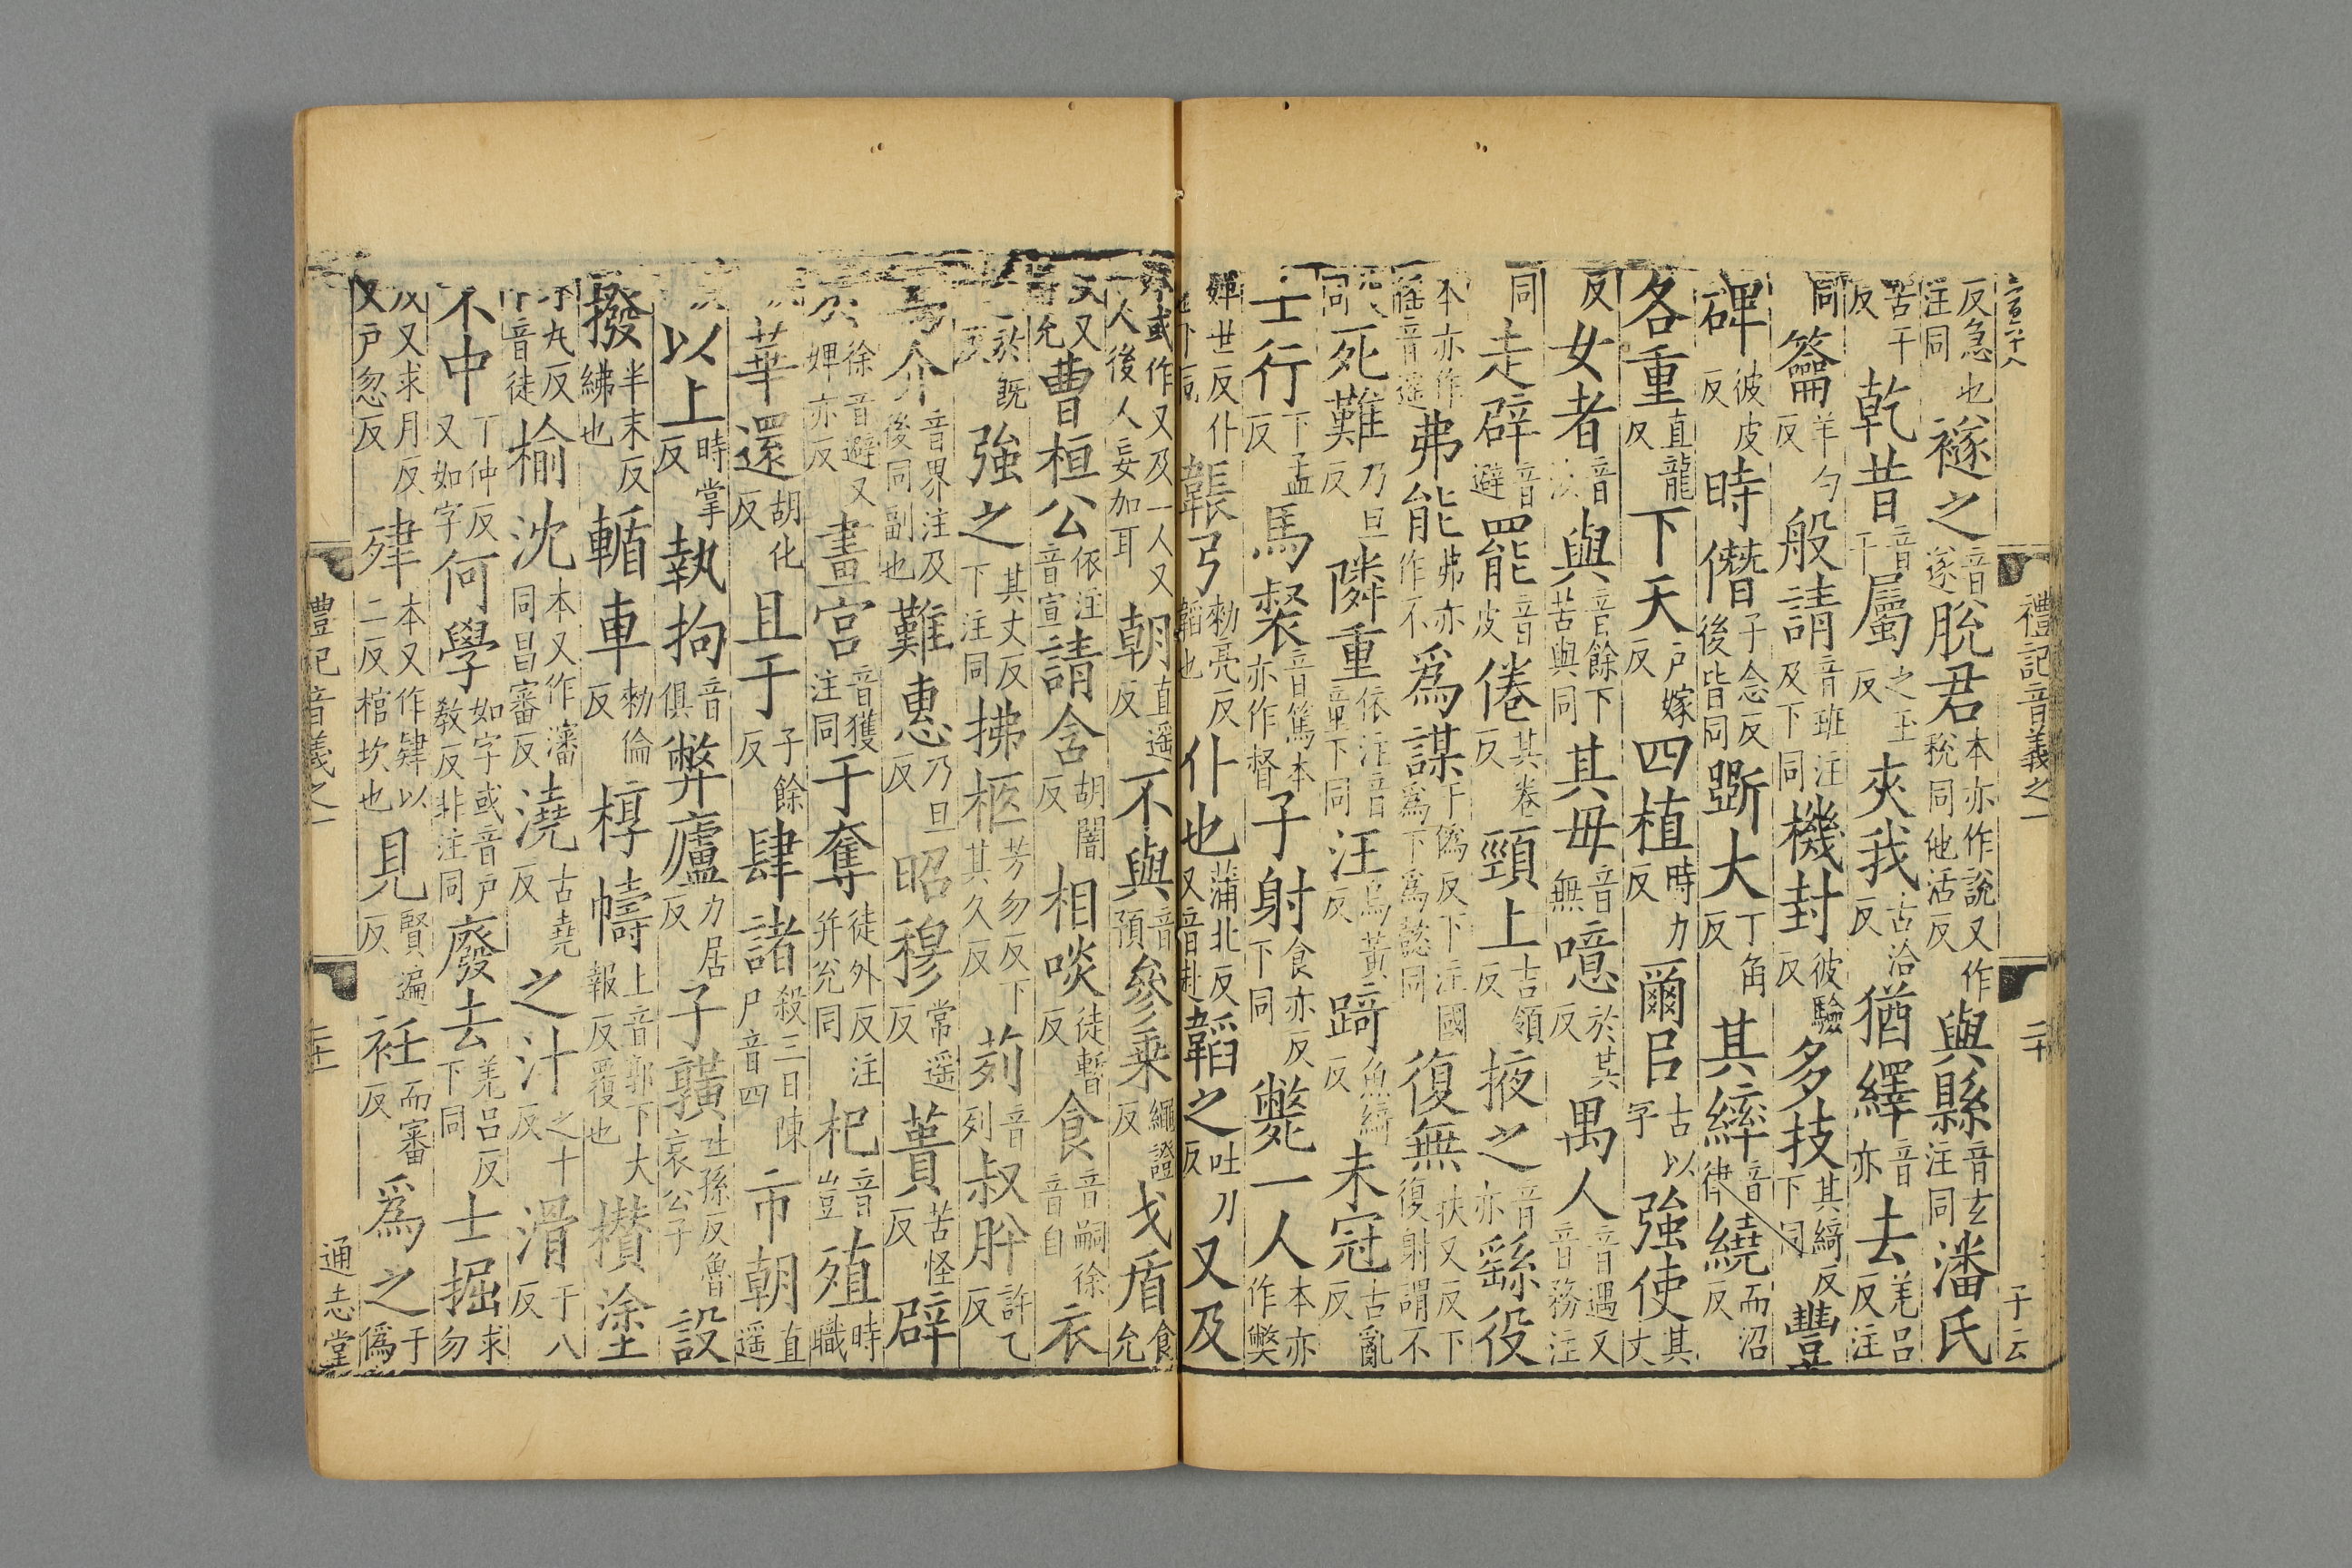 禮記音義之一 二十 子云
反急也 注同 襚之 音遂 脫君 本亦作說又作稅同他活反 與縣 音玄注同 潘氏
苦干反 乾昔 音干 屬 之玉反 夾我 古洽反 猶繹 音亦 去 羌呂反注
同 籥 羊勺反 般請 音班注及下同 機封 彼驗反 多技 其綺反下同 豐
碑 彼皮反 時僭 子念反後皆同 斲大 丁角反 其繂 音律 繞 而沼反
各重 直龍反 下天 戶嫁反 四植 時力反 爾㠯 古以字 強使 其丈
反 女者 音汝 與 音餘下苦與同 其毋 音無 噫 於其反 禺人 音遇又音務注
同 走辟 音避 罷 音皮 倦 其卷反 頸上 吉領反 掖之 音亦 繇役
本亦作徭音遙 弗能 弗亦作不 爲謀 于僞反下注國爲下爲懿同 復無 扶又反下復射謂不
同 死難 乃旦反 隣重 依注音童下同 汪 烏黃反 踦 魚綺反 未冠 古亂反
士行 下孟反 馬督 音篤本亦作督 子射 食亦反下同 斃一人 本亦作獘
韔弓 勑亮反韜也 仆也 蒲北反又音赴 韜之 吐刀反 又及
本或作又及一人又一人後人妄加耳 朝 直遥反 不與 音預 參乗 繩證反 戈盾 食允
又 曹桓公 依注音宣 請含 胡闇反 相啖 徒暫反 食 音嗣徐音自 衣
於既反 強之 其丈反下注同 拂柩 芳勿反下其久反 茢 音列 叔肸 許乙反
爲介 音界注及後同副也 難惠 乃旦反 昭穆 常遥反 蕢 苦怪反 辟
徐音避又婢亦反 畫宮 音獲注同 于奪 徒外反注并兊同 杞 音豈 殖 時職
華還 胡化反 且于 子餘反 肆諸 殺三日陳尸音四 市朝 直遥
以上 時掌反 執拘 音俱 弊廬 力居反 子䵃 吐孫反魯哀公子 設
撥 半末反紼也 輴車 勑倫反 椁幬 上音郭下大報反覆也 欑塗
音徒 榆沈 本又作瀋同昌審反 澆 古堯反 之汁 之十反 滑 于八反
不中 丁仲反又如字 何學 如字或音戶敎反非注同 廢去 羌呂反下同 士掘 求勿
反又求月反又戶忽反 肂 本又作肄以二反棺坎也 見 賢遍反 衽 而審反 爲之 于僞
禮記音義之一 二十一 通志堂